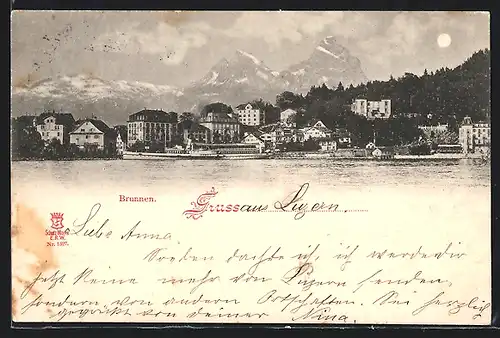 Brunnen.
Gruss aus Luzern.
Schutz-Marke
E.R.W.
Nr. 1107.
Liebe Anna
Soeben dachte ich, ich werde dir
jetzt keine mehr von Luzern senden,
sondern von andern Ortschaften. Sei herzlich
gegrüsst von deiner Nina.